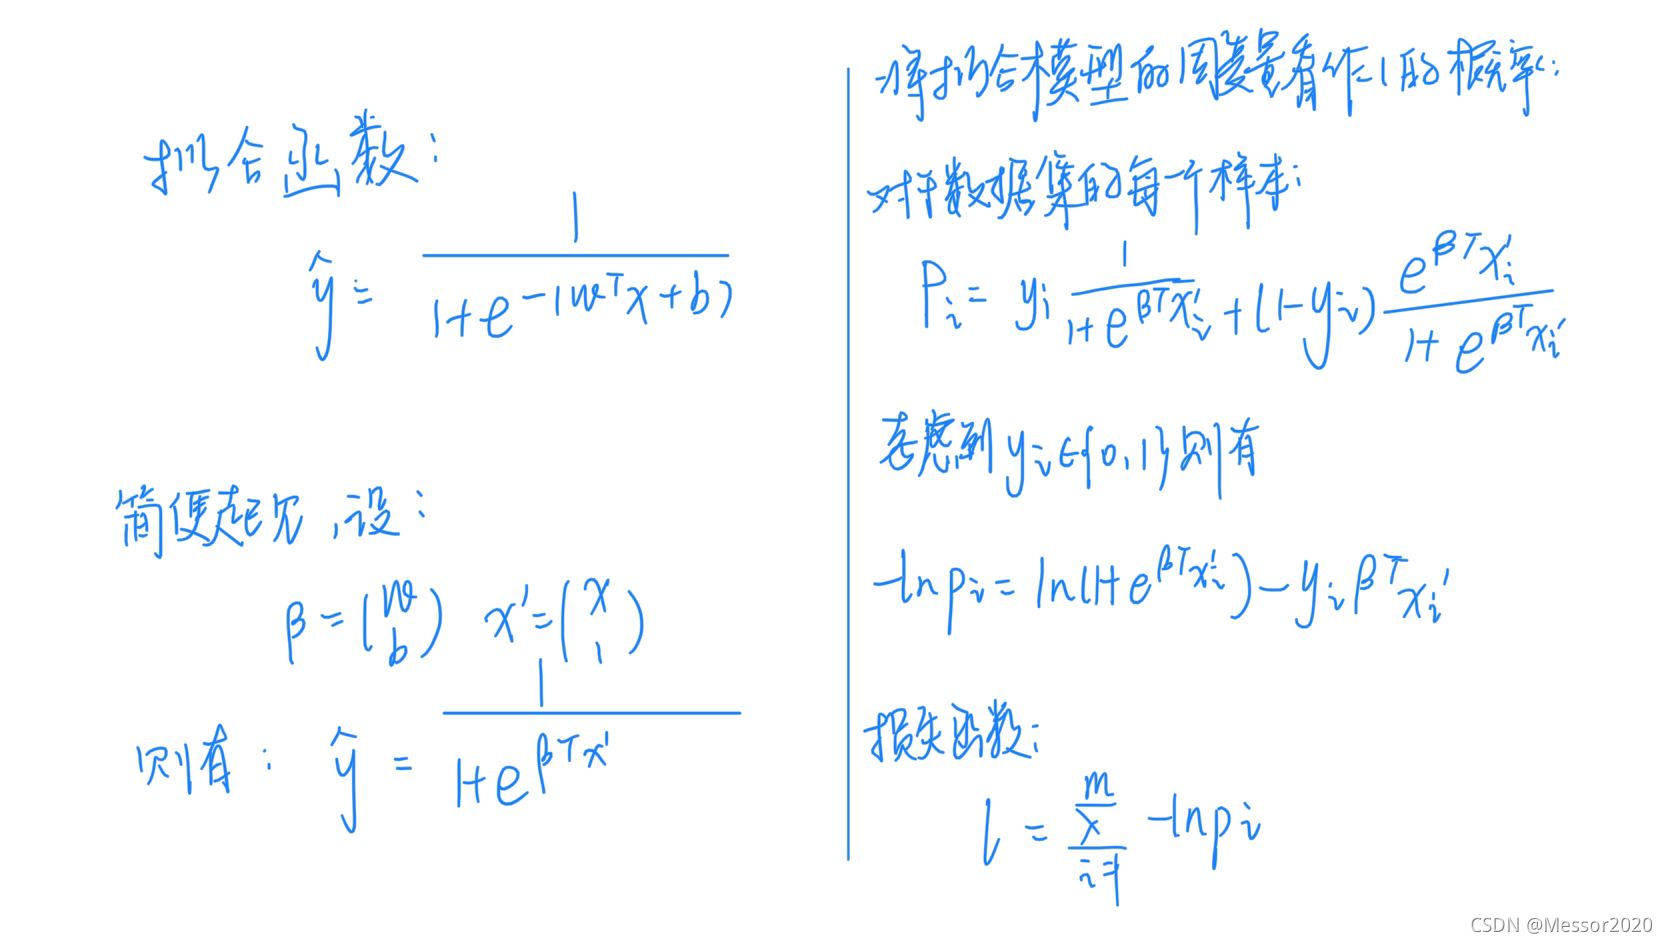 拟合函数:
ŷ = 1/(1+e^{-(w^T x+b)})
简便起见,设:
β = (w b) x' = (x 1)
则有: ŷ = 1/(1+e^{β^T x'})
将拟合模型的因变量看作1的概率:
对于数据集的每一个样本:
P_i = y_i 1/(1+e^{β^T x_i'}) + (1-y_i) e^{β^T x_i'}/(1+e^{β^T x_i'})
考虑到 y_i∈{0,1} 则有
-ln p_i = ln(1+e^{β^T x_i'}) - y_i β^T x_i'
损失函数:
l = Σ_{i=1}^{m} -ln p_i
CSDN @Messor2020